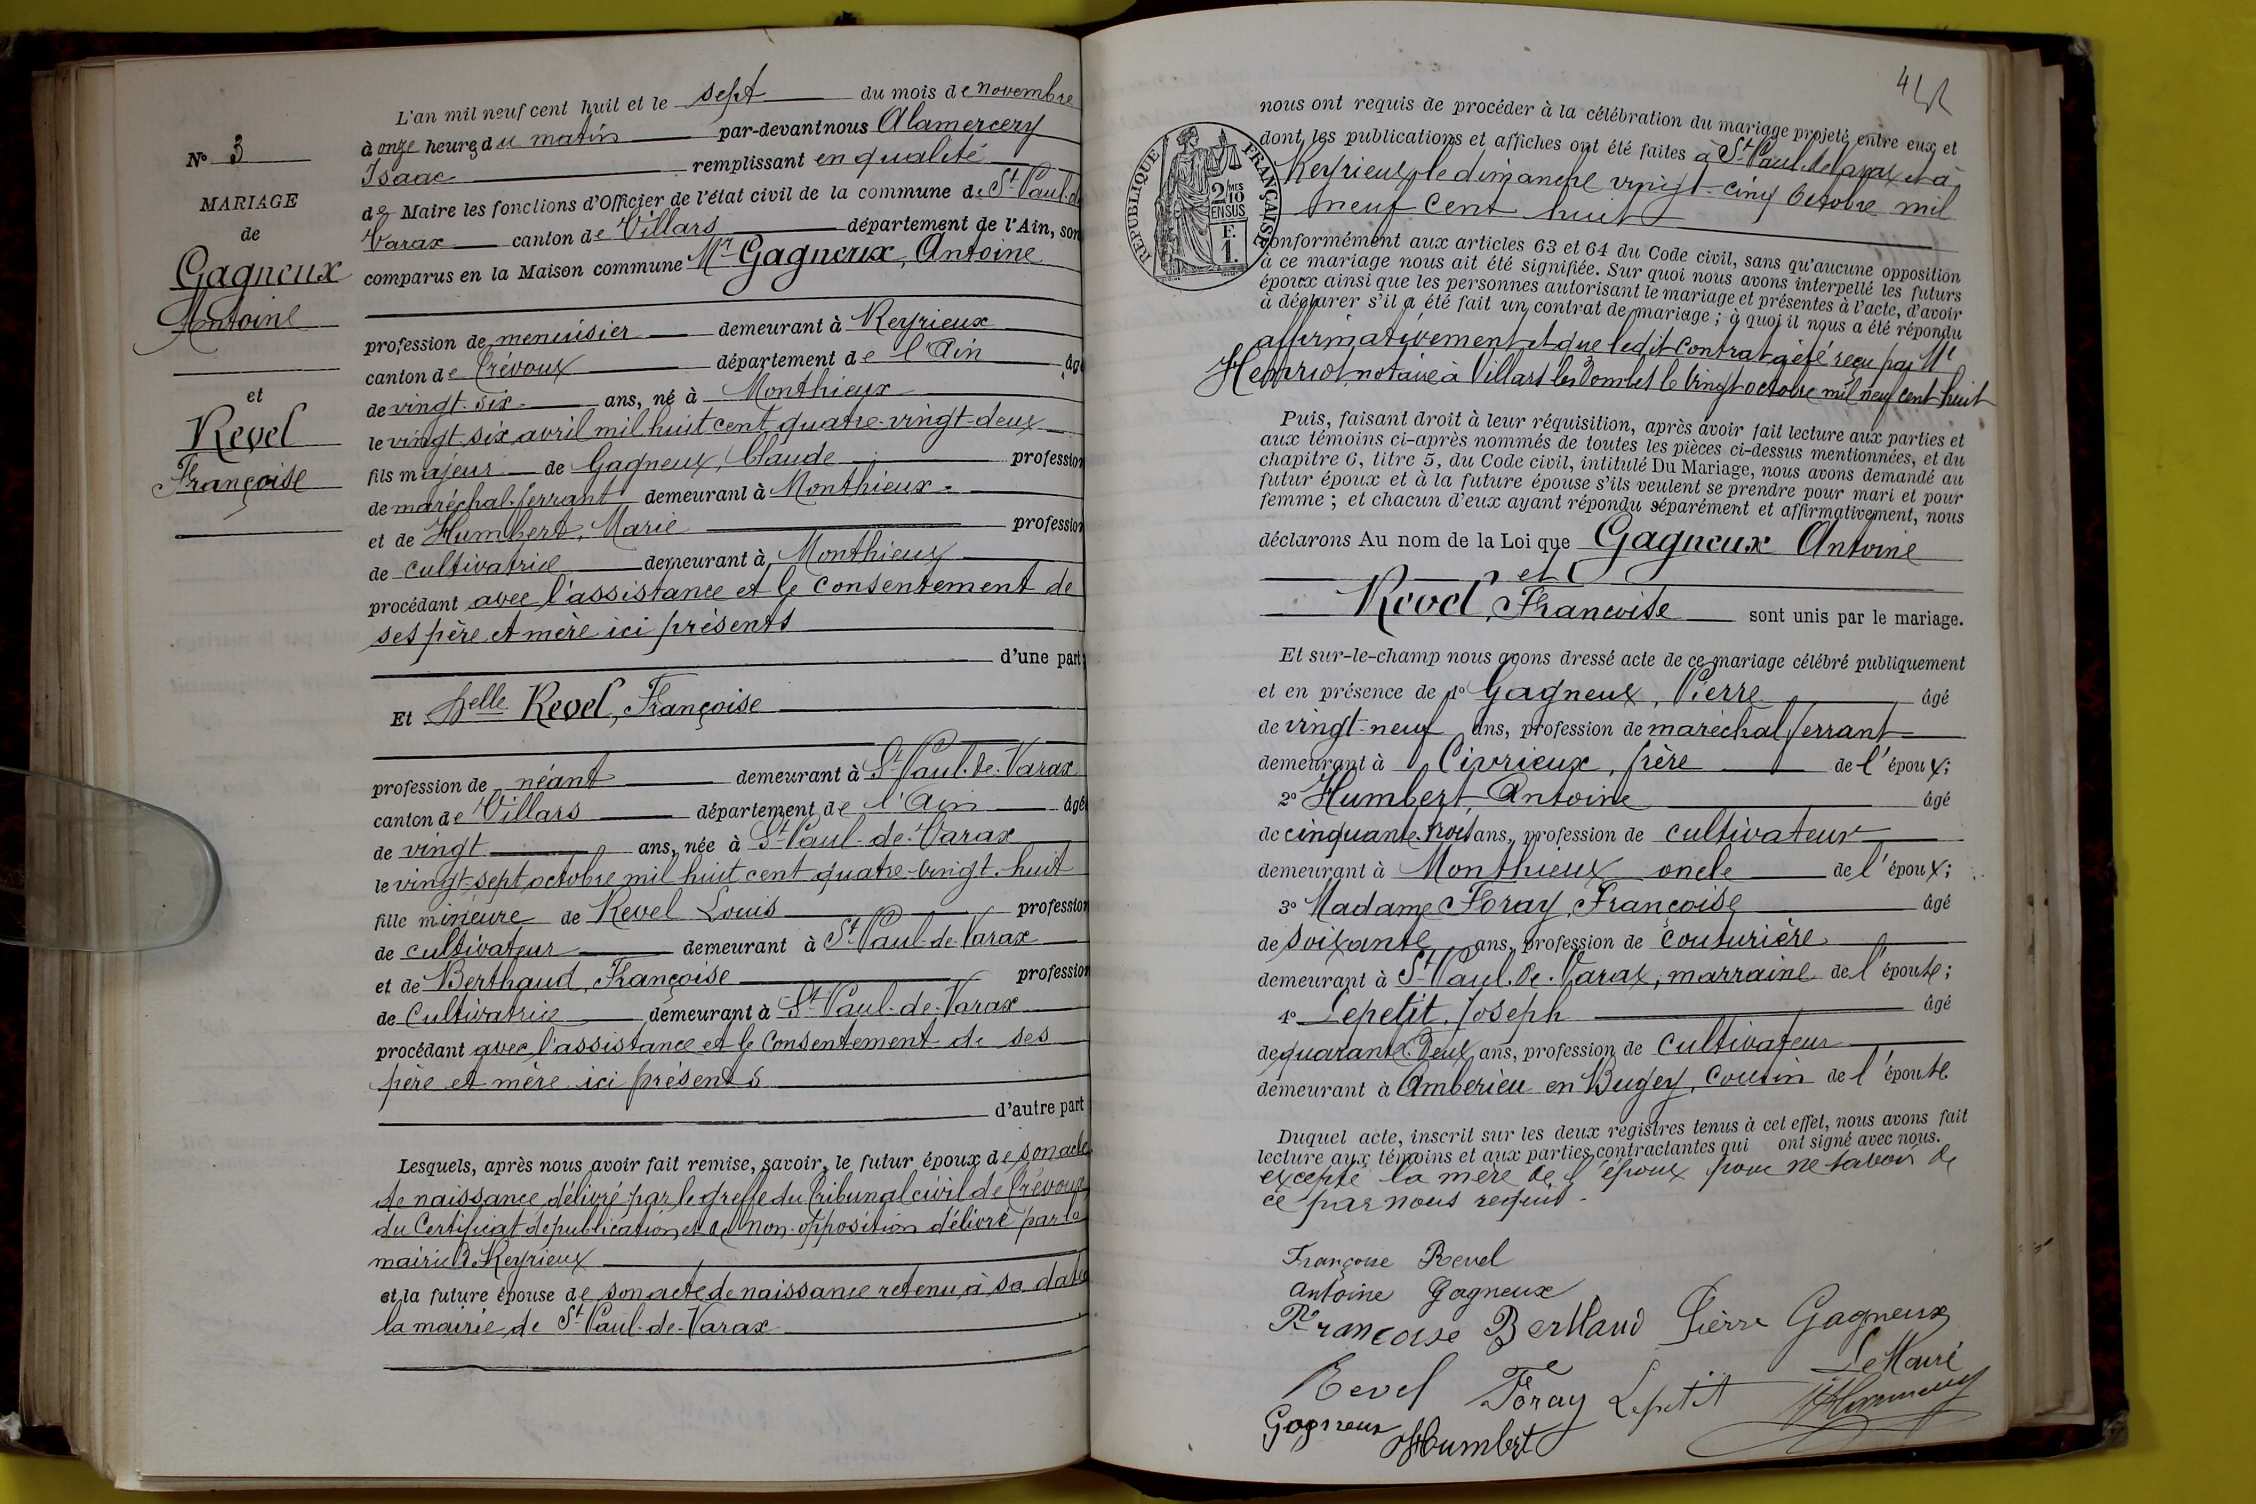 N° 3
MARIAGE
de
Gagneux
Antoine
et
Revel
Françoise
L'an mil neuf cent huit et le sept du mois de novembre
à onze heures du matin par-devant nous Alamercery
Isaac remplissant en qualité
de Maire les fonctions d'Officier de l'état civil de la commune de St Paul-de
Varax canton de Villars département de l'Ain, son
comparus en la Maison commune Mr Gagneux, Antoine
profession de menuisier demeurant à Reyrieux
canton de Trévoux département de l'Ain âgé
de vingt-six ans, né à Monthieux
le vingt six avril mil huit cent quatre-vingt-deux
fils majeur de Gagneux, Claude profession
de maréchal-ferrant demeurant à Monthieux
et de Humbert, Marie profession
de cultivatrice demeurant à Monthieux
procédant avec l'assistance et le consentement de
ses père et mère ici présents
d'une part;
Et Delle Revel, Françoise
profession de néant demeurant à St Paul-de-Varax
canton de Villars département de l'Ain âgé
de vingt ans, née à St Paul-de-Varax
le vingt-sept octobre mil huit cent quatre-vingt-huit
fille mineure de Revel Louis profession
de cultivateur demeurant à St Paul-de-Varax
et de Berthaud, Françoise profession
de Cultivatrice demeurant à St Paul-de-Varax
procédant avec l'assistance et le Consentement de ses
père et mère ici présents
d'autre part
Lesquels, après nous avoir fait remise, savoir, le futur époux de son acte
de naissance délivré par le greffe du Tribunal civil de Trévoux
du Certificat de publication et de non-opposition délivré par la
mairie de Reyrieux
et la future épouse de son acte de naissance retenu à sa date
la mairie de St Paul-de-Varax
nous ont requis de procéder à la célébration du mariage projeté entre eux et
dont les publications et affiches ont été faites à St Paul-de-Varax et à
Reyrieux le dimanche vingt-cinq Octobre mil
neuf cent huit
RÉPUBLIQUE FRANÇAISE
2/10
EN SUS
F.
1.
conformément aux articles 63 et 64 du Code civil, sans qu'aucune opposition
à ce mariage nous ait été signifiée. Sur quoi nous avons interpellé les futurs
époux ainsi que les personnes autorisant le mariage et présentes à l'acte, d'avoir
à déclarer s'il a été fait un contrat de mariage; à quoi il nous a été répondu
affirmativement et que ledit contrat a été reçu par Me
Henriot, notaire à Villars les Dombes le vingt octobre mil neuf cent huit
Puis, faisant droit à leur réquisition, après avoir fait lecture aux parties et
aux témoins ci-après nommés de toutes les pièces ci-dessus mentionnées, et du
chapitre 6, titre 5, du Code civil, intitulé Du Mariage, nous avons demandé au
futur époux et à la future épouse s'ils veulent se prendre pour mari et pour
femme; et chacun d'eux ayant répondu séparément et affirmativement, nous
déclarons Au nom de la Loi que Gagneux Antoine
et
Revel, Francoise sont unis par le mariage.
Et sur-le-champ nous avons dressé acte de ce mariage célébré publiquement
et en présence de 1° Gagneux, Pierre âgé
de vingt-neuf ans, profession de maréchal ferrant
demeurant à Civrieux, frère de l'époux;
2° Humbert, Antoine âgé
de cinquante trois ans, profession de cultivateur
demeurant à Monthieux oncle de l'époux;
3° Madame Foray, Françoise âgé
de soixante ans, profession de couturière
demeurant à St Paul-de-Varax, marraine de l'épouse;
4° Lepetit, Joseph âgé
de quarante-deux ans, profession de Cultivateur
demeurant à Amberieu en Bugey, cousin de l'épouse
Duquel acte, inscrit sur les deux registres tenus à cet effet, nous avons fait
lecture aux témoins et aux parties contractantes qui ont signé avec nous.
excepté la mère de l'époux pour ne savoir de
ce par nous requis.
Françoise Revel
Antoine Gagneux
Francoise Berthaud Pierre Gagneux
Revel Foray Lepetit Le Maire
Gagneux Humbert Alamercery